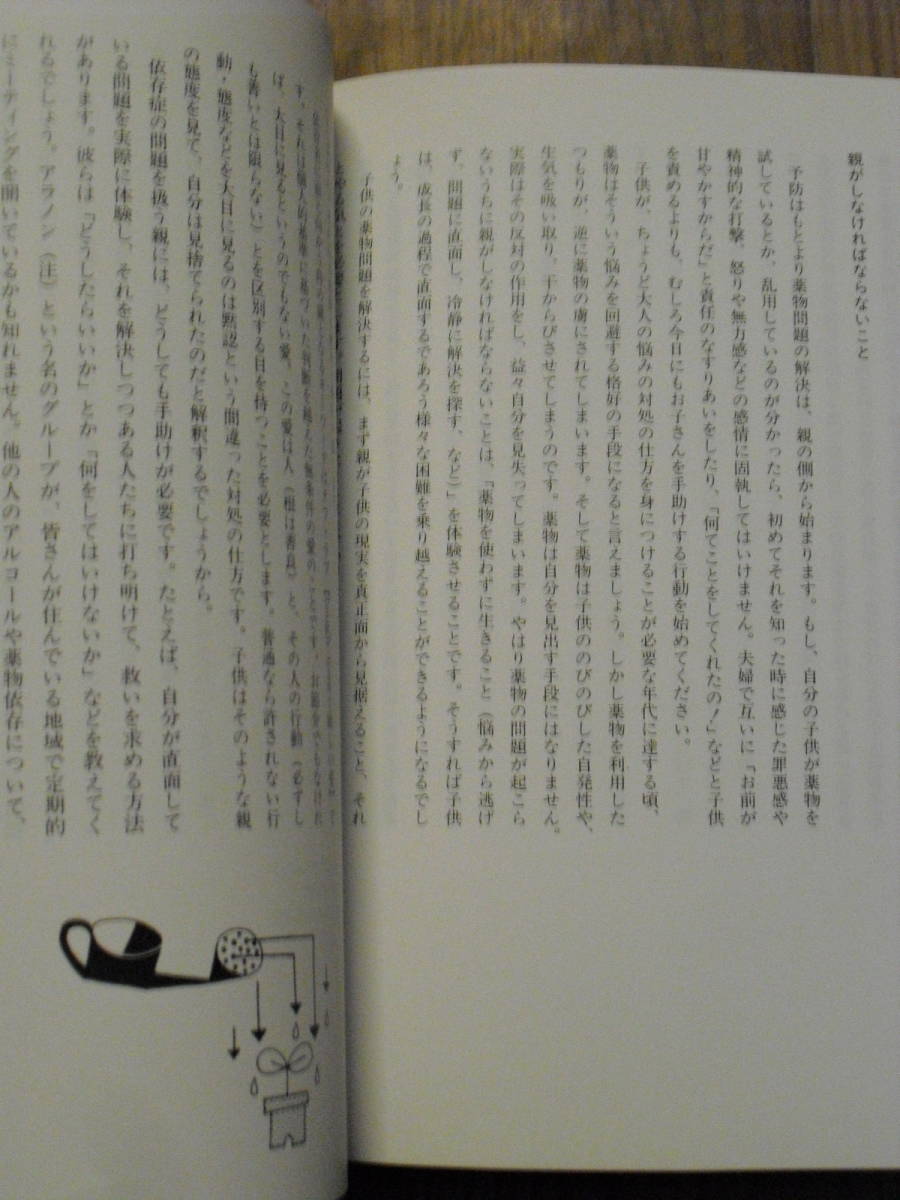 親がしなければならないこと
予防はもとより薬物問題の解決は、親の側から始まります。もし、自分の子供が薬物を
試しているとか、乱用しているのが分かったら、初めてそれを知った時に感じた罪悪感や
精神的な打撃、怒りや無力感などの感情に固執してはいけません。夫婦で互いに「お前が
甘やかすからだ」と責任のなすりあいをしたり、「何てことをしてくれたの！」などと子供
を責めるよりも、むしろ今日にもお子さんを手助けする行動を始めてください。
子供が、ちょうど大人の悩みの対処の仕方を身につけることが必要な年代に達する頃、
薬物はそういう悩みを回避する格好の手段になると言えましょう。しかし薬物を利用した
つもりが、逆に薬物の虜にされてしまいます。そして薬物は子供ののびのびした自発性や、
生気を吸い取り、干からびさせてしまうのです。薬物は自分を見出す手段にはなりません。
実際はその反対の作用をし、益々自分を見失ってしまいます。やはり薬物の問題が起こら
ないうちに親がしなければならないことは、「薬物を使わずに生きること（悩みから逃げ
ず、問題に直面し、冷静に解決を探す、など）」を体験させることです。そうすれば子供
は、成長の過程で直面するであろう様々な困難を乗り越えることができるようになるでし
ょう。
子供の薬物問題を解決するには、まず親が子供の現実を真正面から見据えること、それ
す。それは個人的基準に基づいた判断を越えた無条件の愛のことです。お節介でもなけれ
ば、大目に見るというのでもない愛、この愛は人（根は善良）と、その人の行動（必ずし
も善いとは限らない）とを区別する目を持つことを必要とします。普通なら許されない行
動・態度などを大目に見るのは黙認という間違った対処の仕方です。子供はそのような親
の態度を見て、自分は見捨てられたのだと解釈するでしょうから。
依存症の問題を扱う親には、どうしても手助けが必要です。たとえば、自分が直面して
いる問題を実際に体験し、それを解決しつつある人たちに打ち明けて、救いを求める方法
があります。彼らは「どうしたらいいか」とか「何をしてはいけないか」などを教えてく
れるでしょう。アラノン（注）という名のグループが、皆さんが住んでいる地域で定期的
にミーティングを開いているかも知れません。他の人のアルコールや薬物依存について、